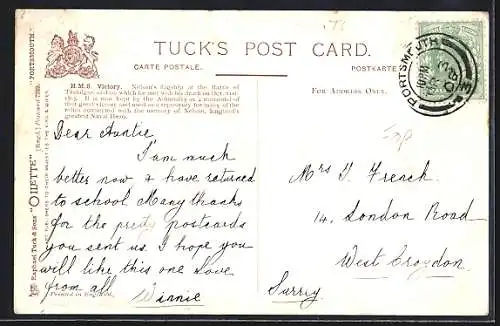 TUCK'S POST CARD.
CARTE POSTALE.
POSTKARTE
H.M.S. Victory. Nelson's flagship at the Battle of
Trafalgar and on which he met with his death on Oct. 21st
It is now kept by the Admiralty as a memorial of
that great victory and used as a repository for many of the
relics connected with the memory of Nelson, England's
greatest Naval Hero.
FOR ADDRESS ONLY.
PORTSMOUTH
"PORTSMOUTH."
Raphael Tuck & Sons' "OILETTE" [Regd.] Postcard
Dear Auntie
I'am much
better now & have returned
to school Many thanks
for the pretty postcards
you sent us. I hope you
will like this one Love
from all Winnie
Printed in England.
Mrs T. French.
14. London Road
West Croydon.
Surrey